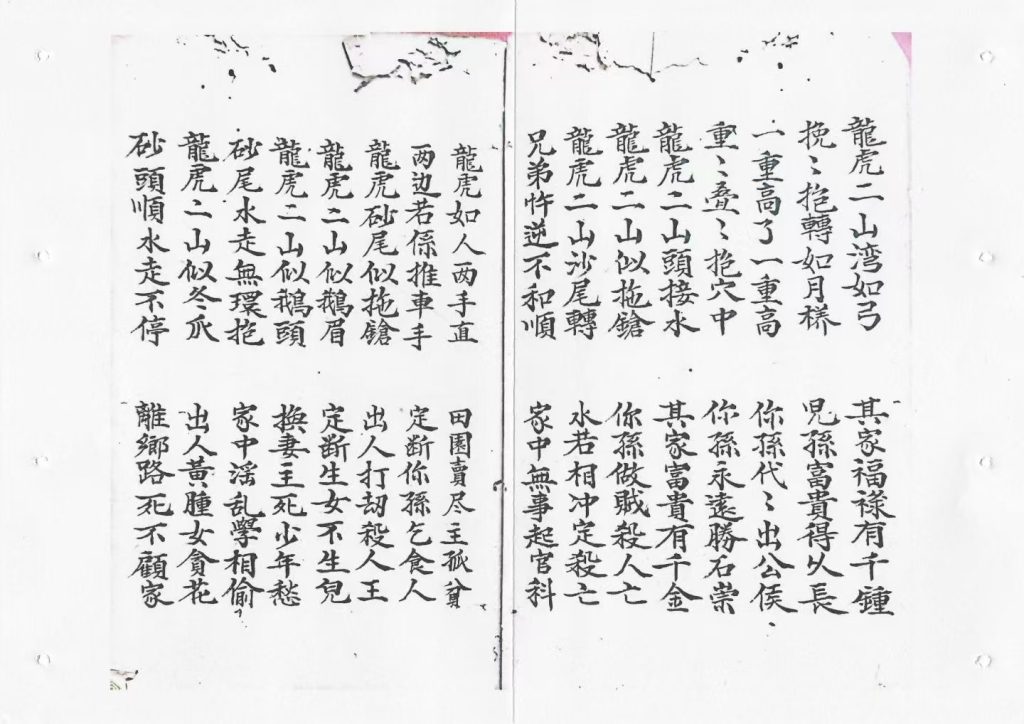 龍虎二山湾如弓 其家福禄有千鍾
挽〻抱轉如月樣 児孫富貴得久長
一重高了一重高 你孫代〻出公侯
重〻叠〻抱穴中 你孫永遠勝石崇
龍虎二山頭接水 其家富貴有千金
龍虎二山似拖鎗 你孫做賊殺人亡
龍虎二山沙尾轉 水若相冲定殺亡
兄弟忤逆不和順 家中無事起官科
龍虎如人两手直 田園賣尽主孤貧
两边若係推車手 定断你孫乞食人
龍虎砂尾似拖鎗 出人打刧殺人王
龍虎二山似鵝眉 定断生女不生兒
龍虎二山似鵝頭 換妻主死少年愁
砂尾水走無環抱 家中淫乱學相偷
龍虎二山似冬瓜 出人黃腫女貪花
砂頭順水走不停 離鄉路死不顧家